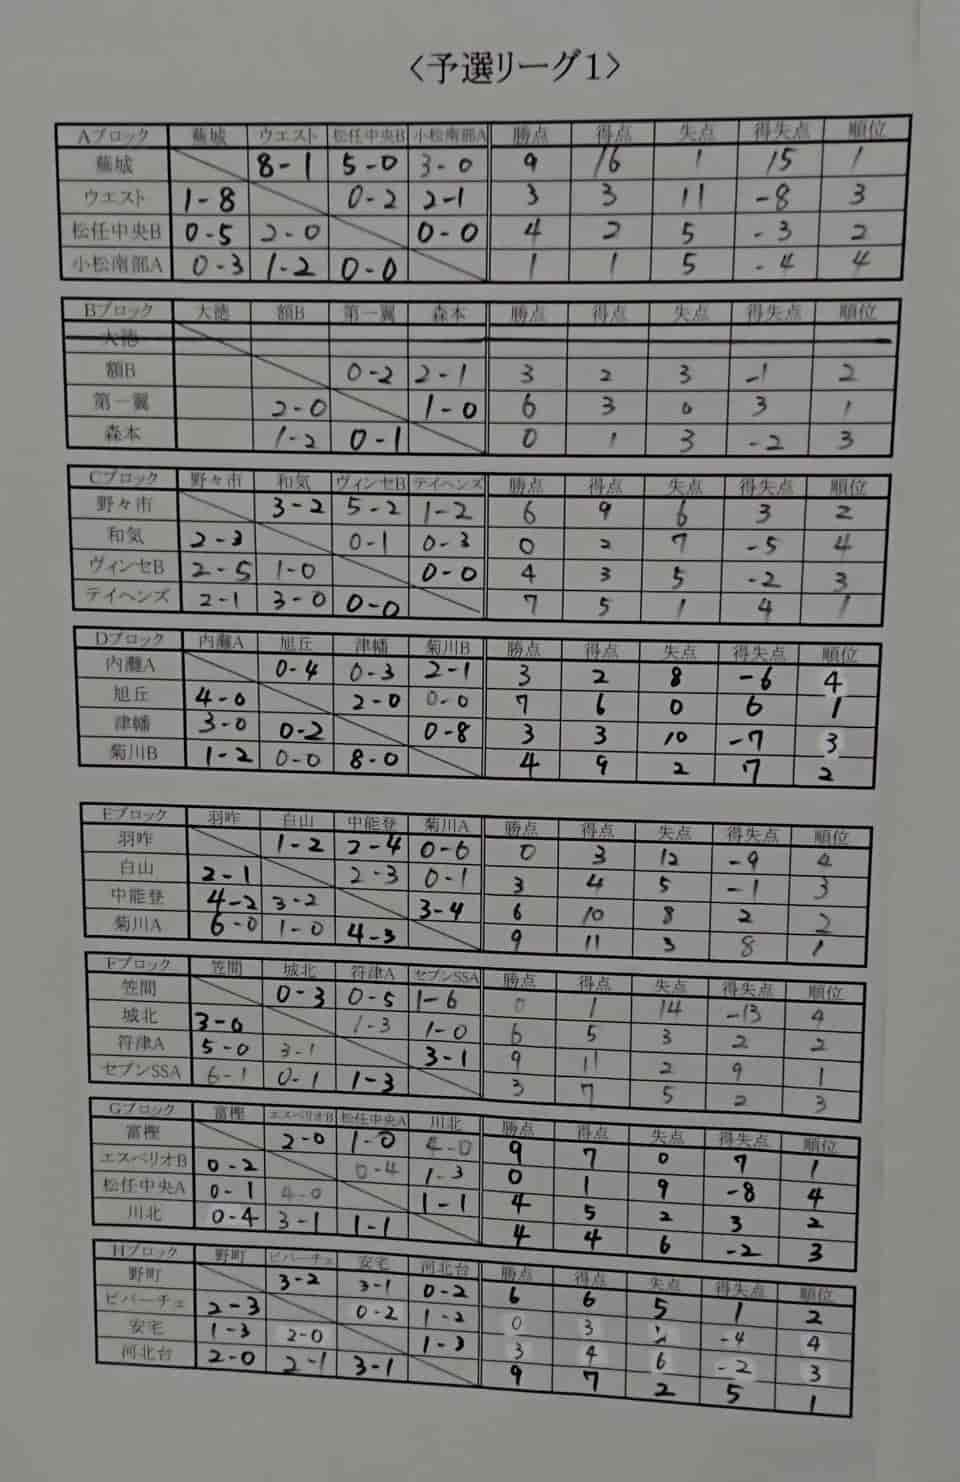 〈予選リーグ1〉
Aブロック 蕪城 ウエスト 松任中央B 小松南部A 勝点 得点 失点 得失点 順位
蕪城 8-1 5-0 3-0 9 16 1 15 1
ウエスト 1-8 0-2 2-1 3 3 11 -8 3
松任中央B 0-5 2-0 0-0 4 2 5 -3 2
小松南部A 0-3 1-2 0-0 1 1 5 -4 4
Bブロック 大徳 額B 第一翼 森本 勝点 得点 失点 得失点 順位
大徳
額B 0-2 2-1 3 2 3 -1 2
第一翼 2-0 1-0 6 3 0 3 1
森本 1-2 0-1 0 1 3 -2 3
Cブロック 野々市 和気 ヴィンセB テイヘンズ 勝点 得点 失点 得失点 順位
野々市 3-2 5-2 1-2 6 9 6 3 2
和気 2-3 0-1 0-3 0 2 7 -5 4
ヴィンセB 2-5 1-0 0-0 4 3 5 -2 3
テイヘンズ 2-1 3-0 0-0 7 5 1 4 1
Dブロック 内灘A 旭丘 津幡 菊川B 勝点 得点 失点 得失点 順位
内灘A 0-4 0-3 2-1 3 2 8 -6 4
旭丘 4-0 2-0 0-0 7 6 0 6 1
津幡 3-0 0-2 0-8 3 3 10 -7 3
菊川B 1-2 0-0 8-0 4 9 2 7 2
Eブロック 羽咋 白山 中能登 菊川A 勝点 得点 失点 得失点 順位
羽咋 1-2 2-4 0-6 0 3 12 -9 4
白山 2-1 2-3 0-1 3 4 5 -1 3
中能登 4-2 3-2 3-4 6 10 8 2 2
菊川A 6-0 1-0 4-3 9 11 3 8 1
Fブロック 笠間 城北 符津A セブンSSA 勝点 得点 失点 得失点 順位
笠間 0-3 0-5 1-6 0 1 14 -13 4
城北 3-0 1-3 1-0 6 5 3 2 2
符津A 5-0 3-1 3-1 9 11 2 9 1
セブンSSA 6-1 0-1 1-3 3 7 5 2 3
Gブロック 富樫 エスペリオB 松任中央A 川北 勝点 得点 失点 得失点 順位
富樫 2-0 1-0 4-0 9 7 0 7 1
エスペリオB 0-2 0-4 1-3 0 1 9 -8 4
松任中央A 0-1 4-0 1-1 4 5 2 3 2
川北 0-4 3-1 1-1 4 4 6 -2 3
Hブロック 野町 ビバーチェ 安宅 河北台 勝点 得点 失点 得失点 順位
野町 3-2 3-1 0-2 6 6 5 1 2
ビバーチェ 2-3 0-2 1-2 0 3 -4 4
安宅 1-3 2-0 1-3 3 4 6 -2 3
河北台 2-0 2-1 3-1 9 7 2 5 1